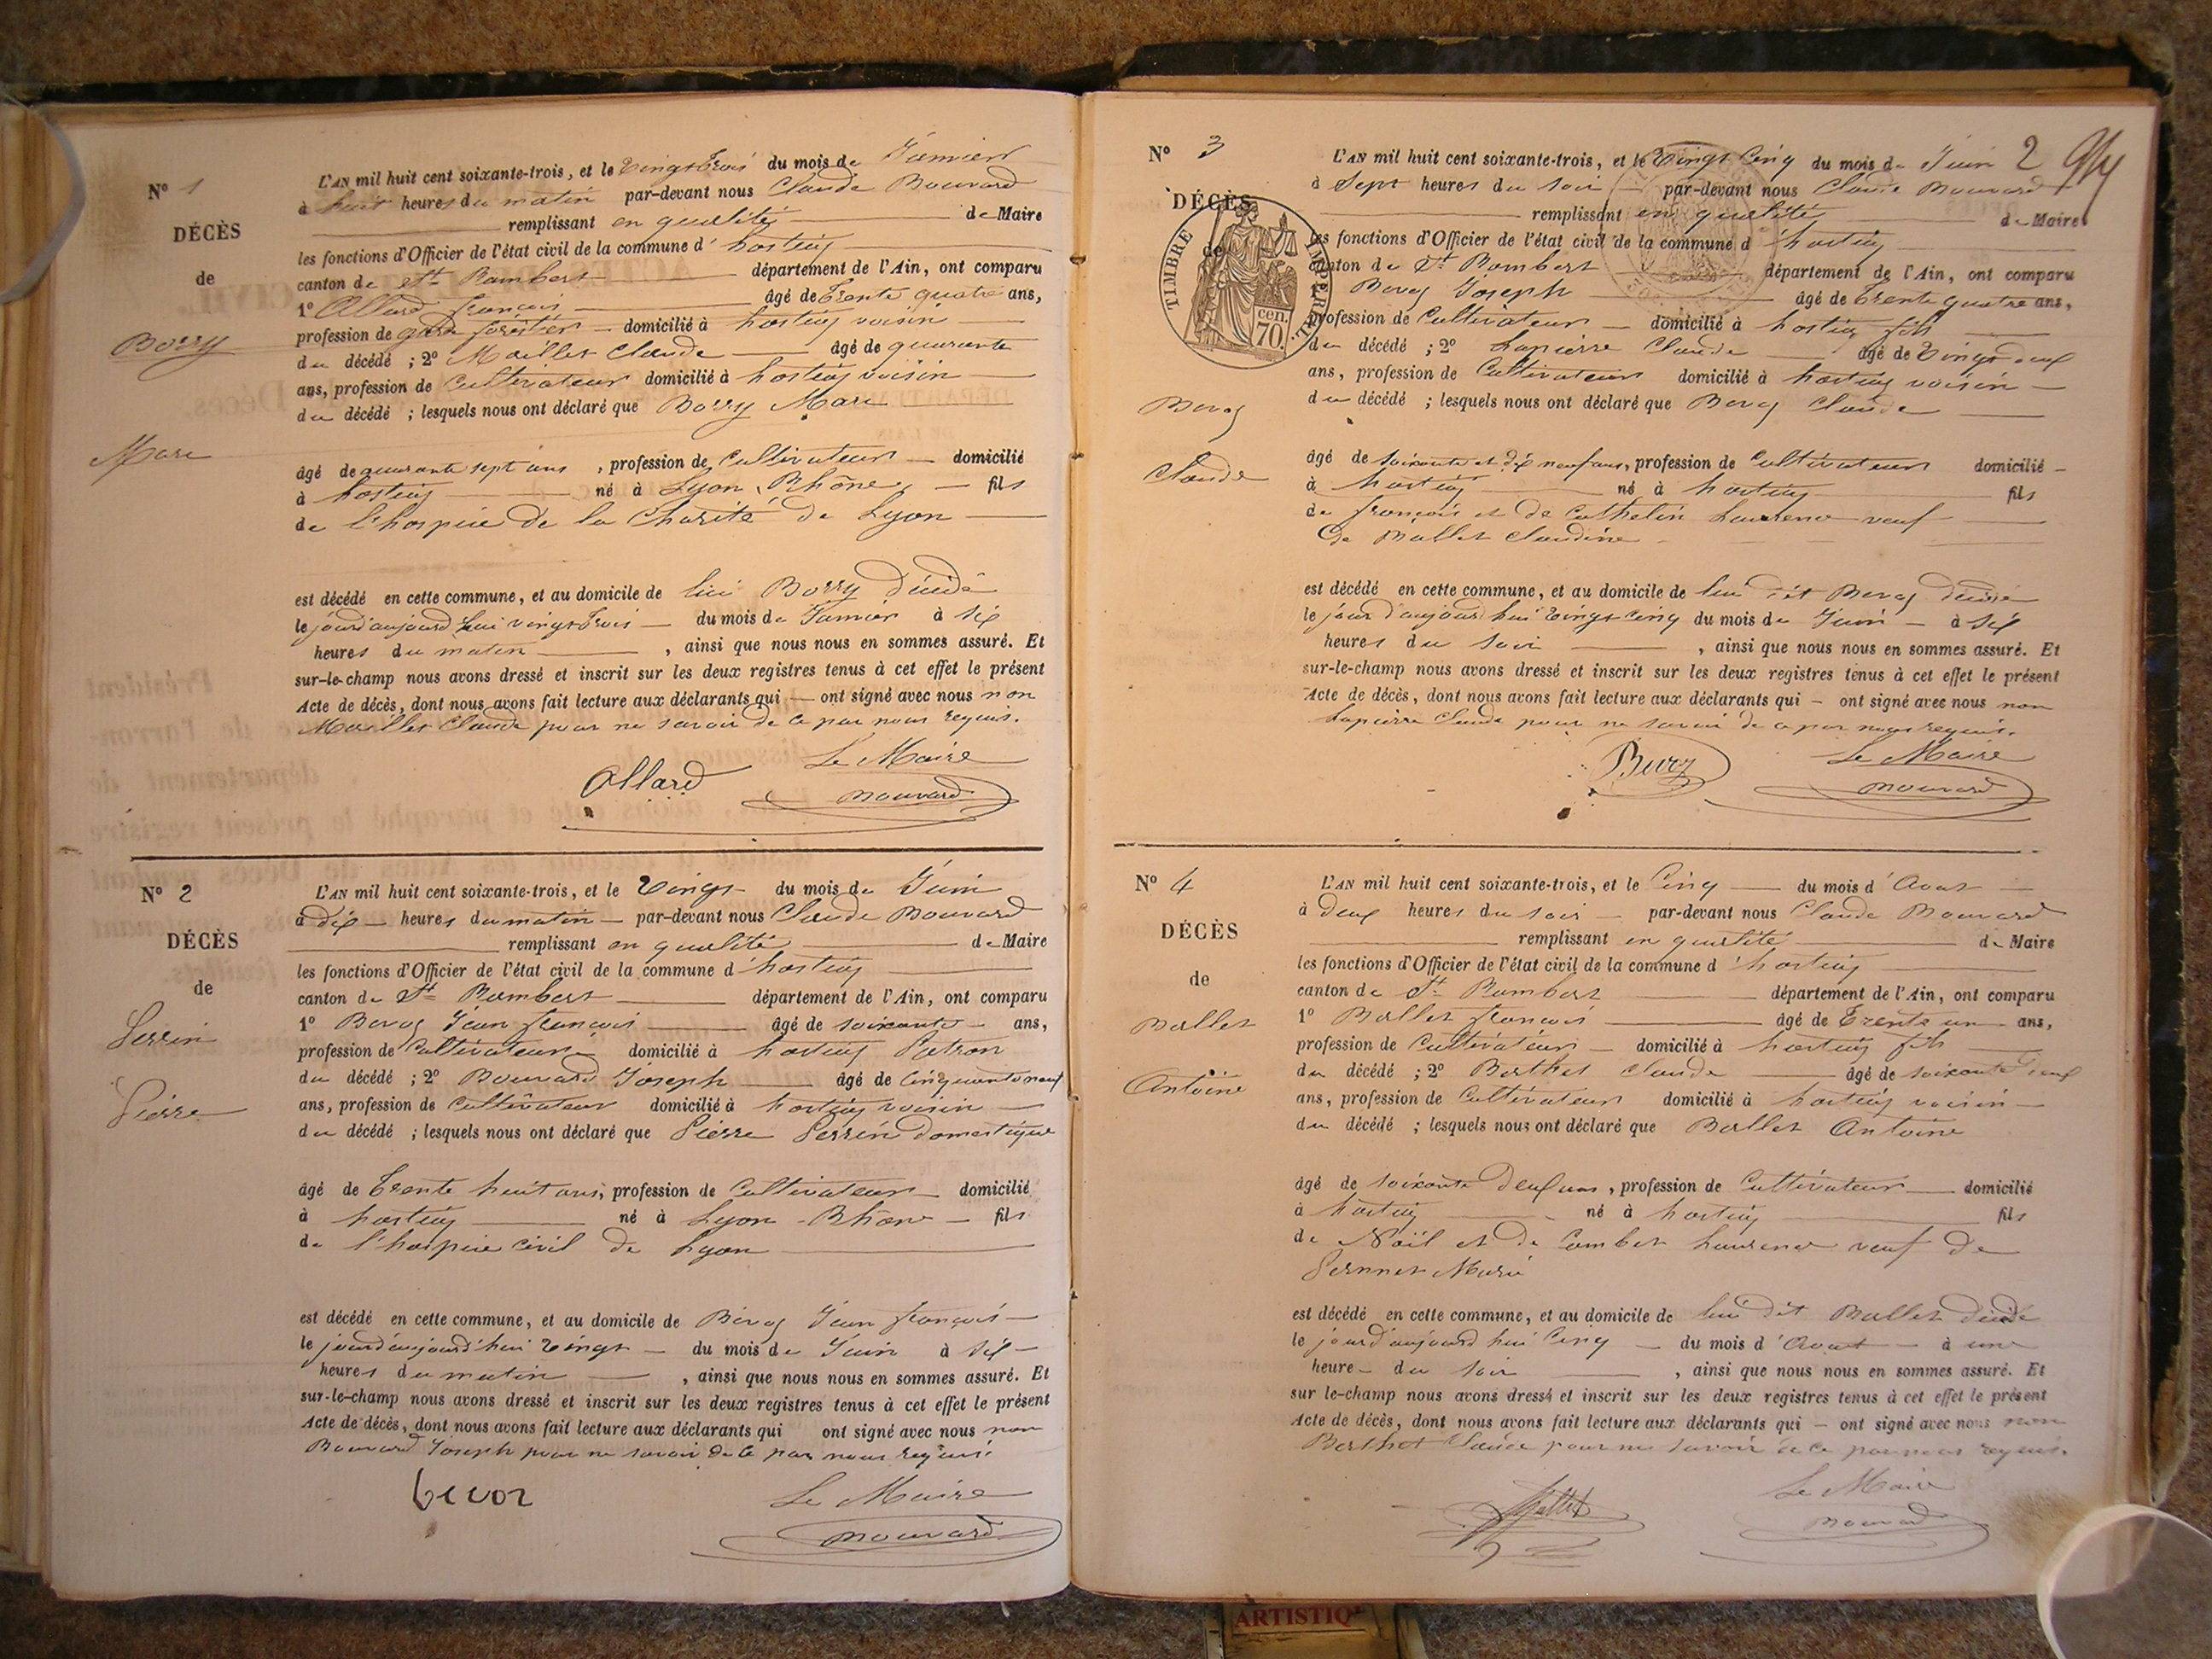 N° 1
DÉCÈS
de
Borry
Marc
L'AN mil huit cent soixante-trois, et le vingt trois du mois de Janvier
à huit heures du matin par-devant nous Claude Bouvard
remplissant en qualité de Maire
les fonctions d'Officier de l'état civil de la commune d' hostiaz
canton de St Rambert département de l'Ain, ont comparu
1° Allard françois âgé de trente quatre ans,
profession de garde forestier domicilié à hostiaz voisin
du décédé ; 2° Maillet Claude âgé de quarante
ans, profession de Cultivateur domicilié à hostiaz voisin
du décédé ; lesquels nous ont déclaré que Borry Marc
âgé de quarante sept ans, profession de Cultivateur domicilié
à hostiaz né à Lyon, Rhône, fils
de l'hospice de la Charité de Lyon
est décédé en cette commune, et au domicile de lui Borry décédé
le jourd'aujourd'hui vingt trois du mois de Janvier à six
heures du matin, ainsi que nous nous en sommes assuré. Et
sur-le-champ nous avons dressé et inscrit sur les deux registres tenus à cet effet le présent
Acte de décès, dont nous avons fait lecture aux déclarants qui — ont signé avec nous non
Maillet Claude pour ne savoir de ce par nous requis.
Le Maire
Allard Bouvard
N° 2
DÉCÈS
de
Perrin
Pierre
L'AN mil huit cent soixante-trois, et le vingt du mois de Juin
à dix heures du matin par-devant nous Claude Bouvard
remplissant en qualité de Maire
les fonctions d'Officier de l'état civil de la commune d' hostiaz
canton de St Rambert département de l'Ain, ont comparu
1° Jean françois âgé de soixante ans,
profession de Cultivateur domicilié à hostiaz Patron
du décédé ; 2° Bouvard Joseph âgé de cinquante neuf
ans, profession de Cultivateur domicilié à hostiaz voisin
du décédé ; lesquels nous ont déclaré que Pierre Perrin domestique
âgé de trente huit ans, profession de Cultivateur domicilié
à hostiaz né à Lyon - Rhône fils
de l'hospice civil de Lyon
est décédé en cette commune, et au domicile de Jean françois
le jourd'aujourd'hui vingt du mois de Juin à six
heures du matin, ainsi que nous nous en sommes assuré. Et
sur-le-champ nous avons dressé et inscrit sur les deux registres tenus à cet effet le présent
Acte de décès, dont nous avons fait lecture aux déclarants qui ont signé avec nous non
Bouvard Joseph pour ne savoir de ce par nous requis.
Le Maire
Bouvard
N° 3
DÉCÈS
de
Claude
TIMBRE IMPÉRIAL
70 cen.
2
L'AN mil huit cent soixante-trois, et le vingt cinq du mois de Juin
à sept heures du soir par-devant nous Claude Bouvard
remplissant en qualité de Maire
les fonctions d'Officier de l'état civil de la commune d' hostiaz
canton de St Rambert département de l'Ain, ont comparu
Joseph âgé de trente quatre ans,
profession de Cultivateur domicilié à hostiaz fils
du décédé ; 2° Lapierre Claude âgé de vingt deux
ans, profession de Cultivateur domicilié à hostiaz voisin
du décédé ; lesquels nous ont déclaré que Claude
âgé de soixante et dix neuf ans, profession de Cultivateur domicilié
à hostiaz né à hostiaz fils
de françois et de Cathelin Laurence veuf
de Ballet Claudine
est décédé en cette commune, et au domicile de lui dit décédé
le jour d'aujourd'hui vingt cinq du mois de Juin à six
heures du soir, ainsi que nous nous en sommes assuré. Et
sur-le-champ nous avons dressé et inscrit sur les deux registres tenus à cet effet le présent
Acte de décès, dont nous avons fait lecture aux déclarants qui — ont signé avec nous non
Lapierre Claude pour ne savoir de ce par nous requis.
Le Maire
Bouvard
N° 4
DÉCÈS
de
Ballet
Antoine
L'AN mil huit cent soixante-trois, et le Cinq du mois d'Aout
à deux heures du soir par-devant nous Claude Bouvard
remplissant en qualité de Maire
les fonctions d'Officier de l'état civil de la commune d' hostiaz
canton de St Rambert département de l'Ain, ont comparu
1° Ballet françois âgé de trente un ans,
profession de Cultivateur domicilié à hostiaz fils
du décédé ; 2° Berthet Claude âgé de soixante deux
ans, profession de Cultivateur domicilié à hostiaz voisin
du décédé ; lesquels nous ont déclaré que Ballet Antoine
âgé de soixante deux ans, profession de Cultivateur domicilié
à hostiaz né à hostiaz fils
de Noël et de Combet Laurence veuf de
Pernnet Marie
est décédé en cette commune, et au domicile de lui dit Ballet décédé
le jourd'aujourd'hui cinq du mois d'Aout à une
heure du soir, ainsi que nous nous en sommes assuré. Et
sur le-champ nous avons dressé et inscrit sur les deux registres tenus à cet effet le présent
Acte de décès, dont nous avons fait lecture aux déclarants qui — ont signé avec nous non
Berthet Claude pour ne savoir de ce par nous requis.
Le Maire
Ballet Bouvard
ARTISTIQ